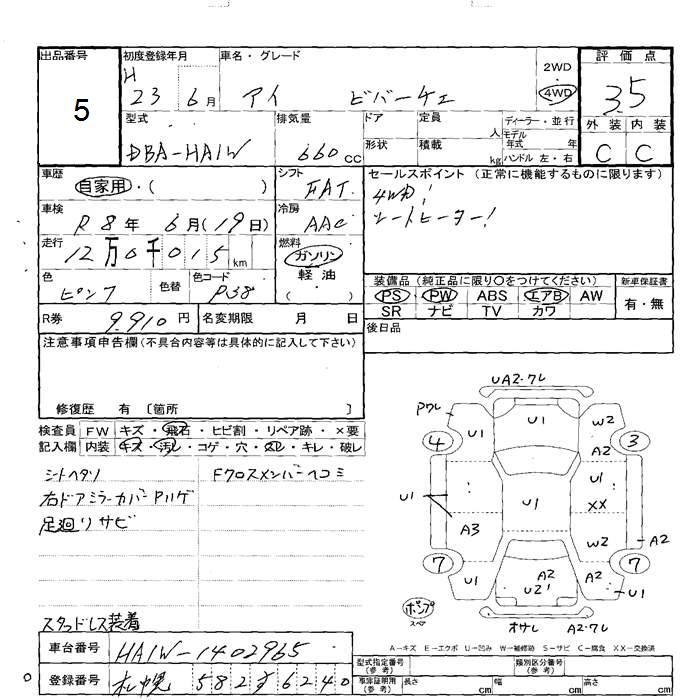 出品番号 5
初度登録年月 H 23 6月
車名・グレード アイ ビバーチェ
2WD 4WD
評価点 3.5
外装 内装
C C
型式 DBA-HA1W
排気量 660cc
ドア 定員 人
形状 積載 kg
ディーラー・並行
モデル年式 年
ハンドル 左・右
車歴 自家用・( )
シフト FAT
セールスポイント (正常に機能するものに限ります)
4WD!
シートヒーター!
車検 R8年 6月(19日)
冷房 AAC
走行 12万0千015km
燃料 ガソリン
軽油
( )
色 ピンク 色替 色コード P38
装備品 (純正品に限り〇をつけてください)
PS PW ABS エアB AW
SR ナビ TV カワ
新車保証書
有・無
R券 9,910円 名変期限 月 日
後日品
注意事項申告欄(不具合内容等は具体的に記入して下さい)
修復歴 有 〔箇所 〕
検査員記入欄
FW キズ・飛石・ヒビ割・リペア跡・×要
内装 キズ・汚レ・コゲ・穴・スレ・キレ・破レ
シートヘタリ
Fクロスメンバーヘコミ
右ドアミラーカバーPハゲ
足廻リサビ
スタッドレス装着
UA2・ワレ
Pワレ U1 U1 W2
4 A2 3
U1 U1 U1 XX
A3 W2 A2
7 7
U1 A2 U2 A2 U1
ポンプ
スペア
オサレ A2・ワレ
A-キズ E-エクボ U-凹み W-補修跡 S-サビ C-腐食 XX-交換済
車台番号 HA1W-1402965
登録番号 札幌 582す6240
型式指定番号(参考) 類別区分番号(参考)
車庫証明用(参考) 長さ cm 幅 cm 高さ cm